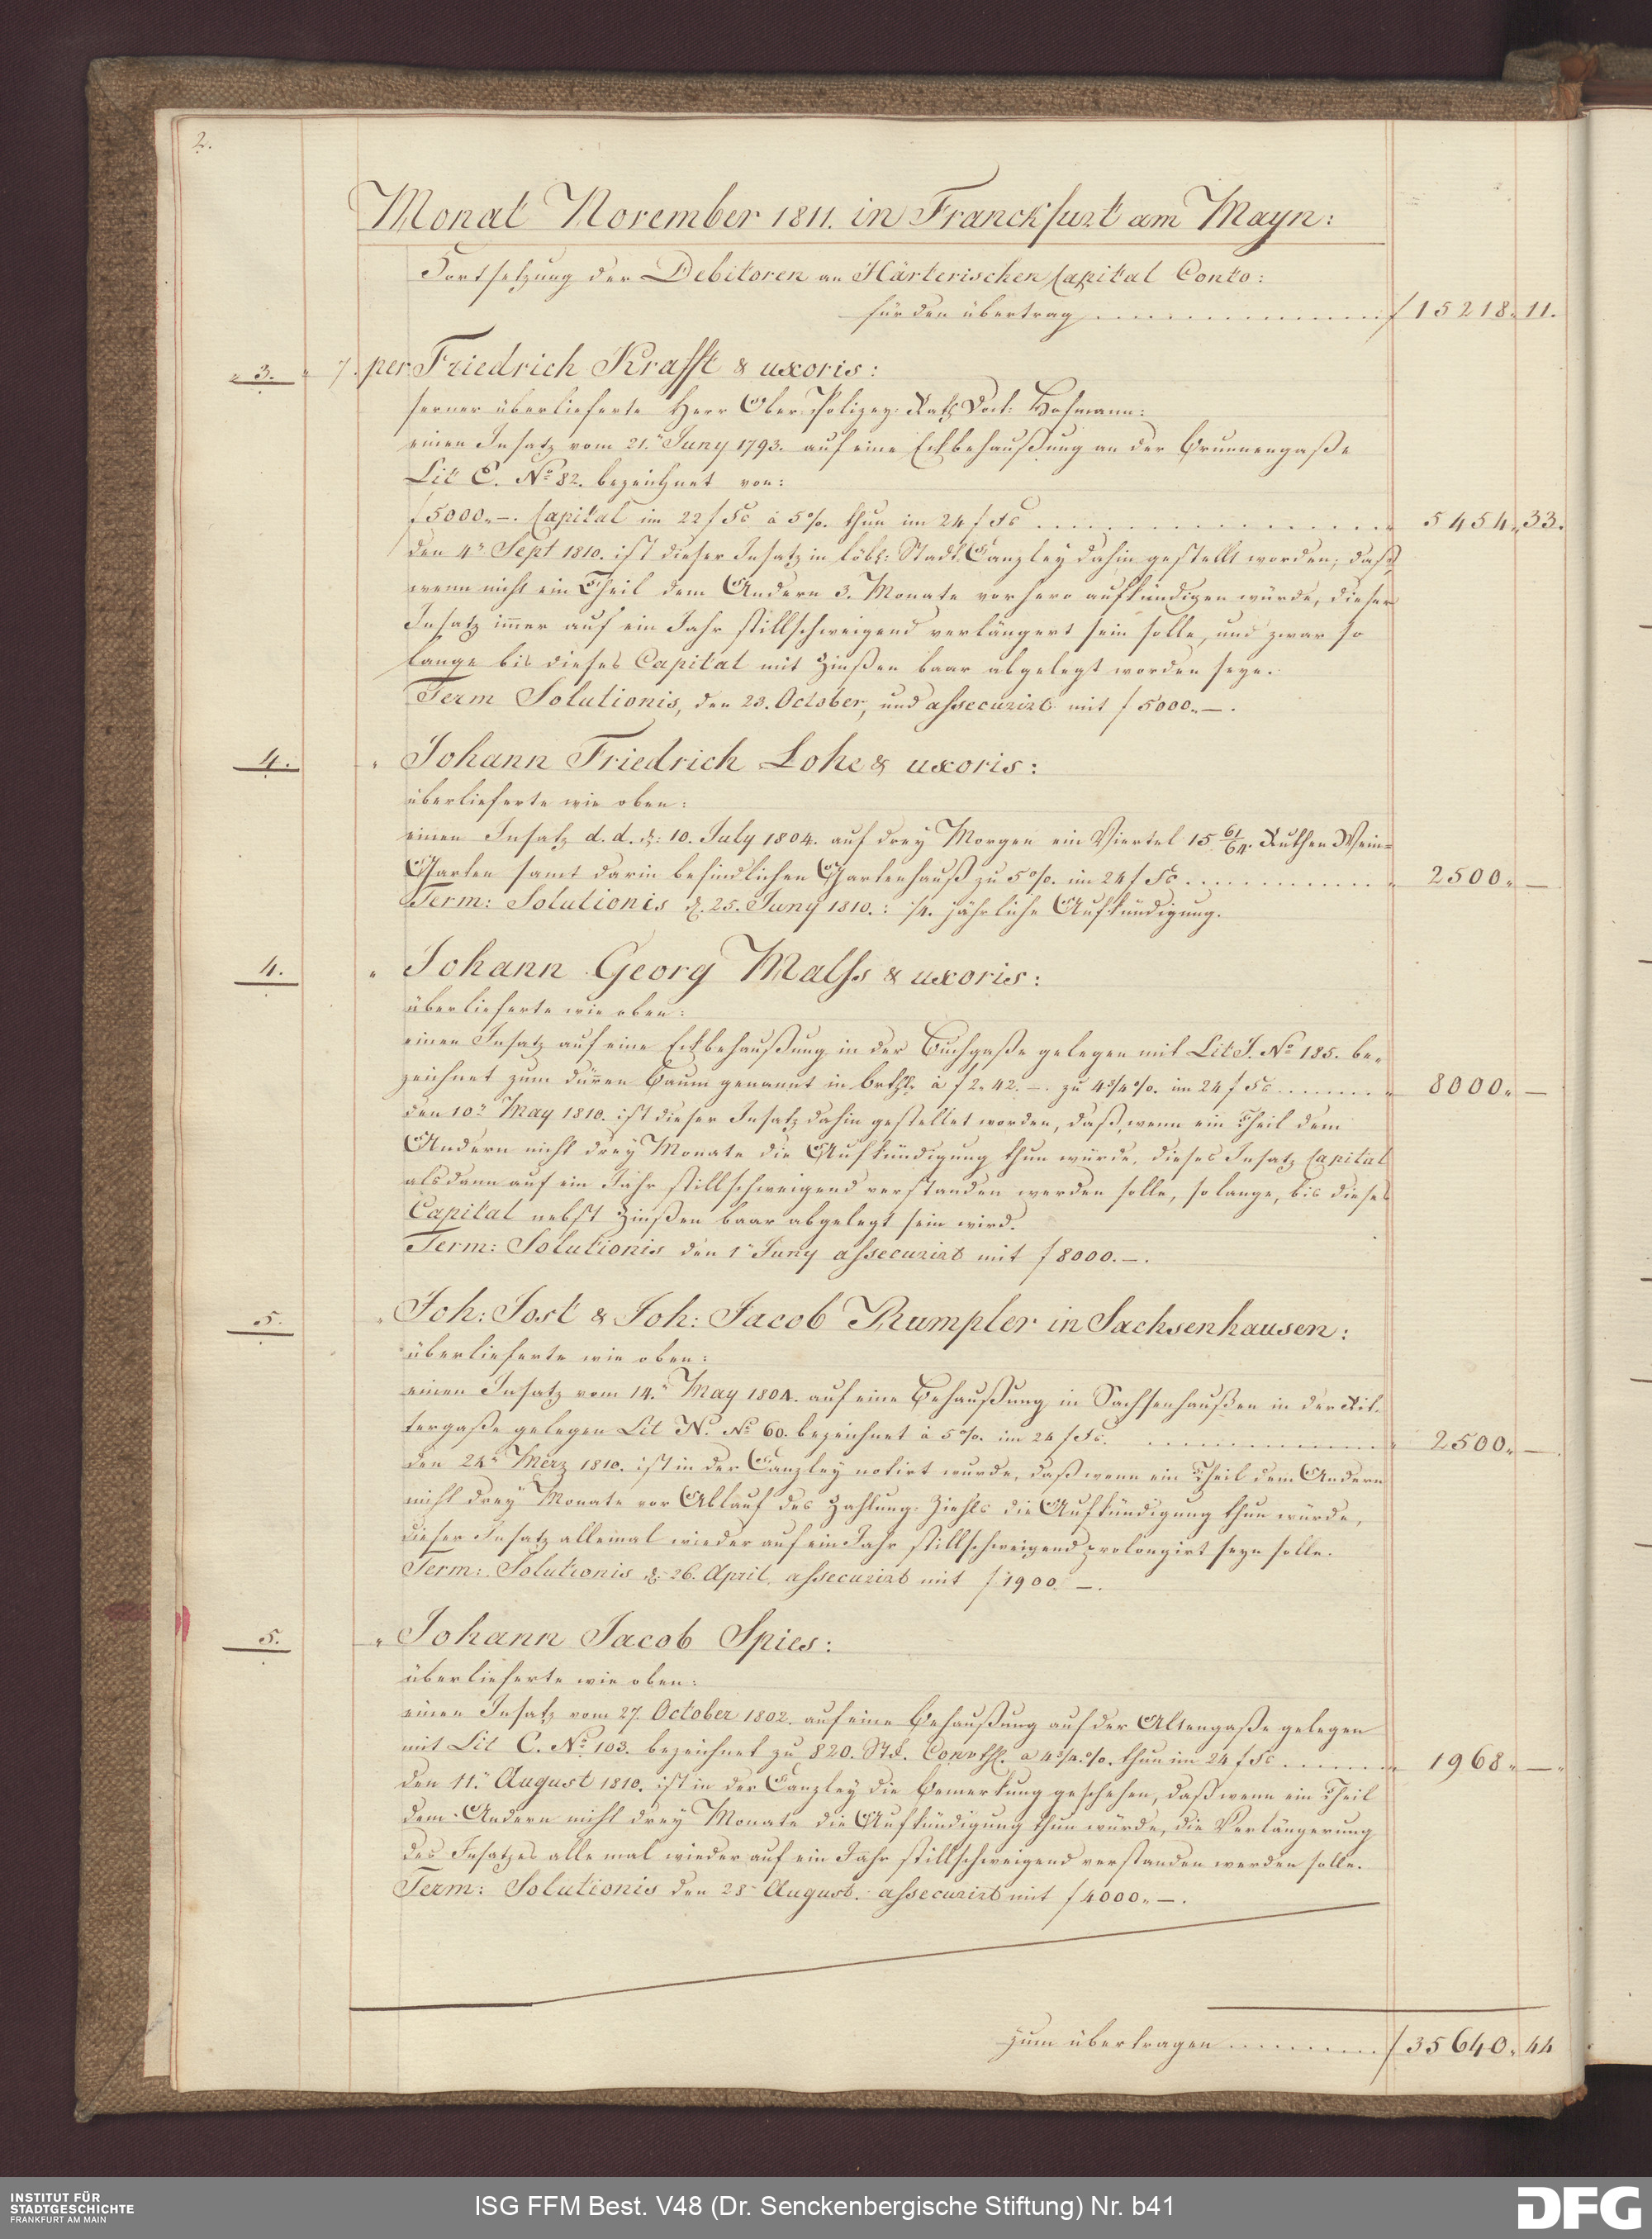 2.
Monat November 1811. in Franckfurt am Mayn:
Fortsetzung der Debitoren an Härterischen Capital Conto:
für den übertrag . . . . . . . . . . f 15218. 11.
3. 7. per Friedrich Krafft & uxoris:
ferner überlieferte Herr Ober Polizey Rath Doct: Hofmann:
einen Insatz vom 21. Juny 1793. auf eine Eckbehaußung an der Brunnengaße
Lit E. No 82. bezeichnet von:
f 5000. –. Capital im 22 f Fs à 5%. thun im 24 f Fs . . . . . . . . . . 5454. 33.
den 4n Sept 1810. ist dieser Insatz in löbl: Stadt Canzley dahin gestellt worden, daß,
wenn nicht ein Theil dem Andern 3. Monate vorhero aufkündigen würde, dieser
Insatz immer auf ein Jahr stillschweigend verlängert sein solle, und zwar so
lange bis dieses Capital mit Zinßen baar abgelegt worden seye.
Term Solutionis, den 23. October, und assecurirt mit f 5000. –.
4. " Johann Friedrich Lohe & uxoris:
überlieferte wie oben:
einen Insatz d. d. d: 10. July 1804. auf drey Morgen ein Viertel 15 61/64. Ruthen Wein-
Garten samt darin befindlichen Gartenhauß zu 5%. im 24 f Fs . . . . . . . . . . 2500. —
Term: Solutionis d. 25. Juny 1810.: 1/4. jährliche Aufkündigung.
4. " Johann Georg Malss & uxoris:
überlieferte wie oben:
einen Insatz auf eine Eckbehaußung in der Buchgaße gelegen mit Lit J. No 185. be-
zeichnet zum dürren Baum genannt in à f 2. 42. –. zu 4 3/4 %. im 24 f Fs . . . . . . . 8000. —
den 10n May 1810. ist dieser Insatz dahin gestellet worden, daß, wenn ein Theil dem
Andern nicht drey Monate die Aufkündigung thun würde, dieses Insatz Capital
alsdann auf ein Jahr stillschweigend verstanden werden solle, so lange, bis dieses
Capital nebst Zinßen baar abgelegt sein wird.
Term: Solutionis den 1n Juny assecurirt mit f 8000. –.
5. " Joh: Jost & Joh: Jacob Rumpler in Sachsenhausen:
überlieferte wie oben:
einen Insatz vom 14.n May 1804. auf eine Behaußung in Sachsenhaußen in der Rit-
tergaße gelegen Lit N. No 60. bezeichnet à 5%. im 24 f Fs. . . . . . . . . . . 2500. —
den 24n Merz 1810. ist in der Canzley notirt wurde, daß wenn ein Theil dem Andern
nicht drey Monate vor Ablauf des Zahlung-Ziehls die Aufkündigung thun würde,
dieser Insatz allemal wieder auf ein Jahr stillschweigend prolongirt seyn solle.
Term: Solutionis d: 26. April, assecurirt mit f 1900. –.
5. " Johann Jacob Spies:
überlieferte wie oben:
einen Insatz vom 27. October 1802. auf eine Behaußung auf der Altengaße gelegen
mit Lit C. No 103. bezeichnet zu 820. Stk. Convthl. a 4 3/4 %. thun im 24 f Fs . . . . . . . 1968. —
den 11.n August 1810. ist in der Canzley die Bemerkung geschehen, daß wenn ein Theil
dem Andern nicht drey Monate die Aufkündigung thun würde, die Verlängerung
des Insatzes alle mal wieder auf ein Jahr stillschweigend verstanden werden solle.
Term: Solutionis den 28n August. assecurirt mit f 4000. –.
zum übertragen . . . . . . . . . . f 35640. 44
INSTITUT FÜR
STADTGESCHICHTE
FRANKFURT AM MAIN
ISG FFM Best. V48 (Dr. Senckenbergische Stiftung) Nr. b41
DFG